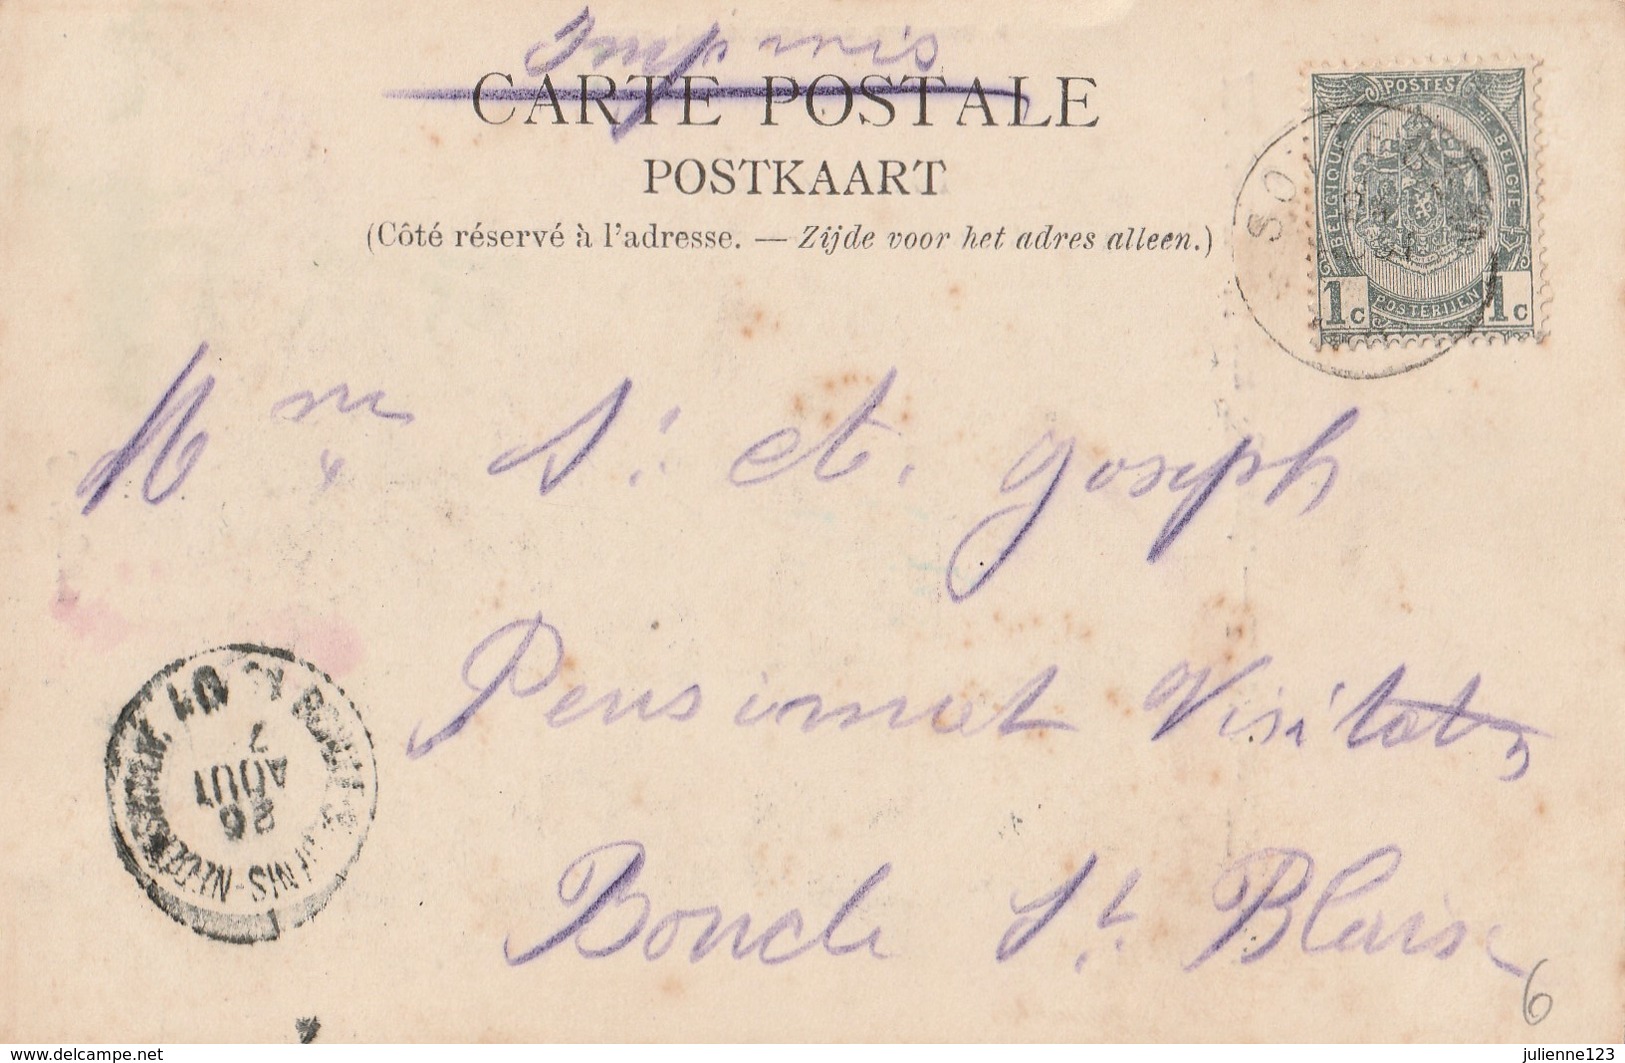 Imprimés
CARTE POSTALE
POSTKAART
(Côté réservé à l'adresse. — Zijde voor het adres alleen.)
POSTES
BELGIQUE
BELGIE
POSTERIJEN
1c 1c
Mme St. et. Joseph
Pensionnat Visitation
Boucle St. Blaise
26
AOUT
7
6
www.delcampe.net
julienne123